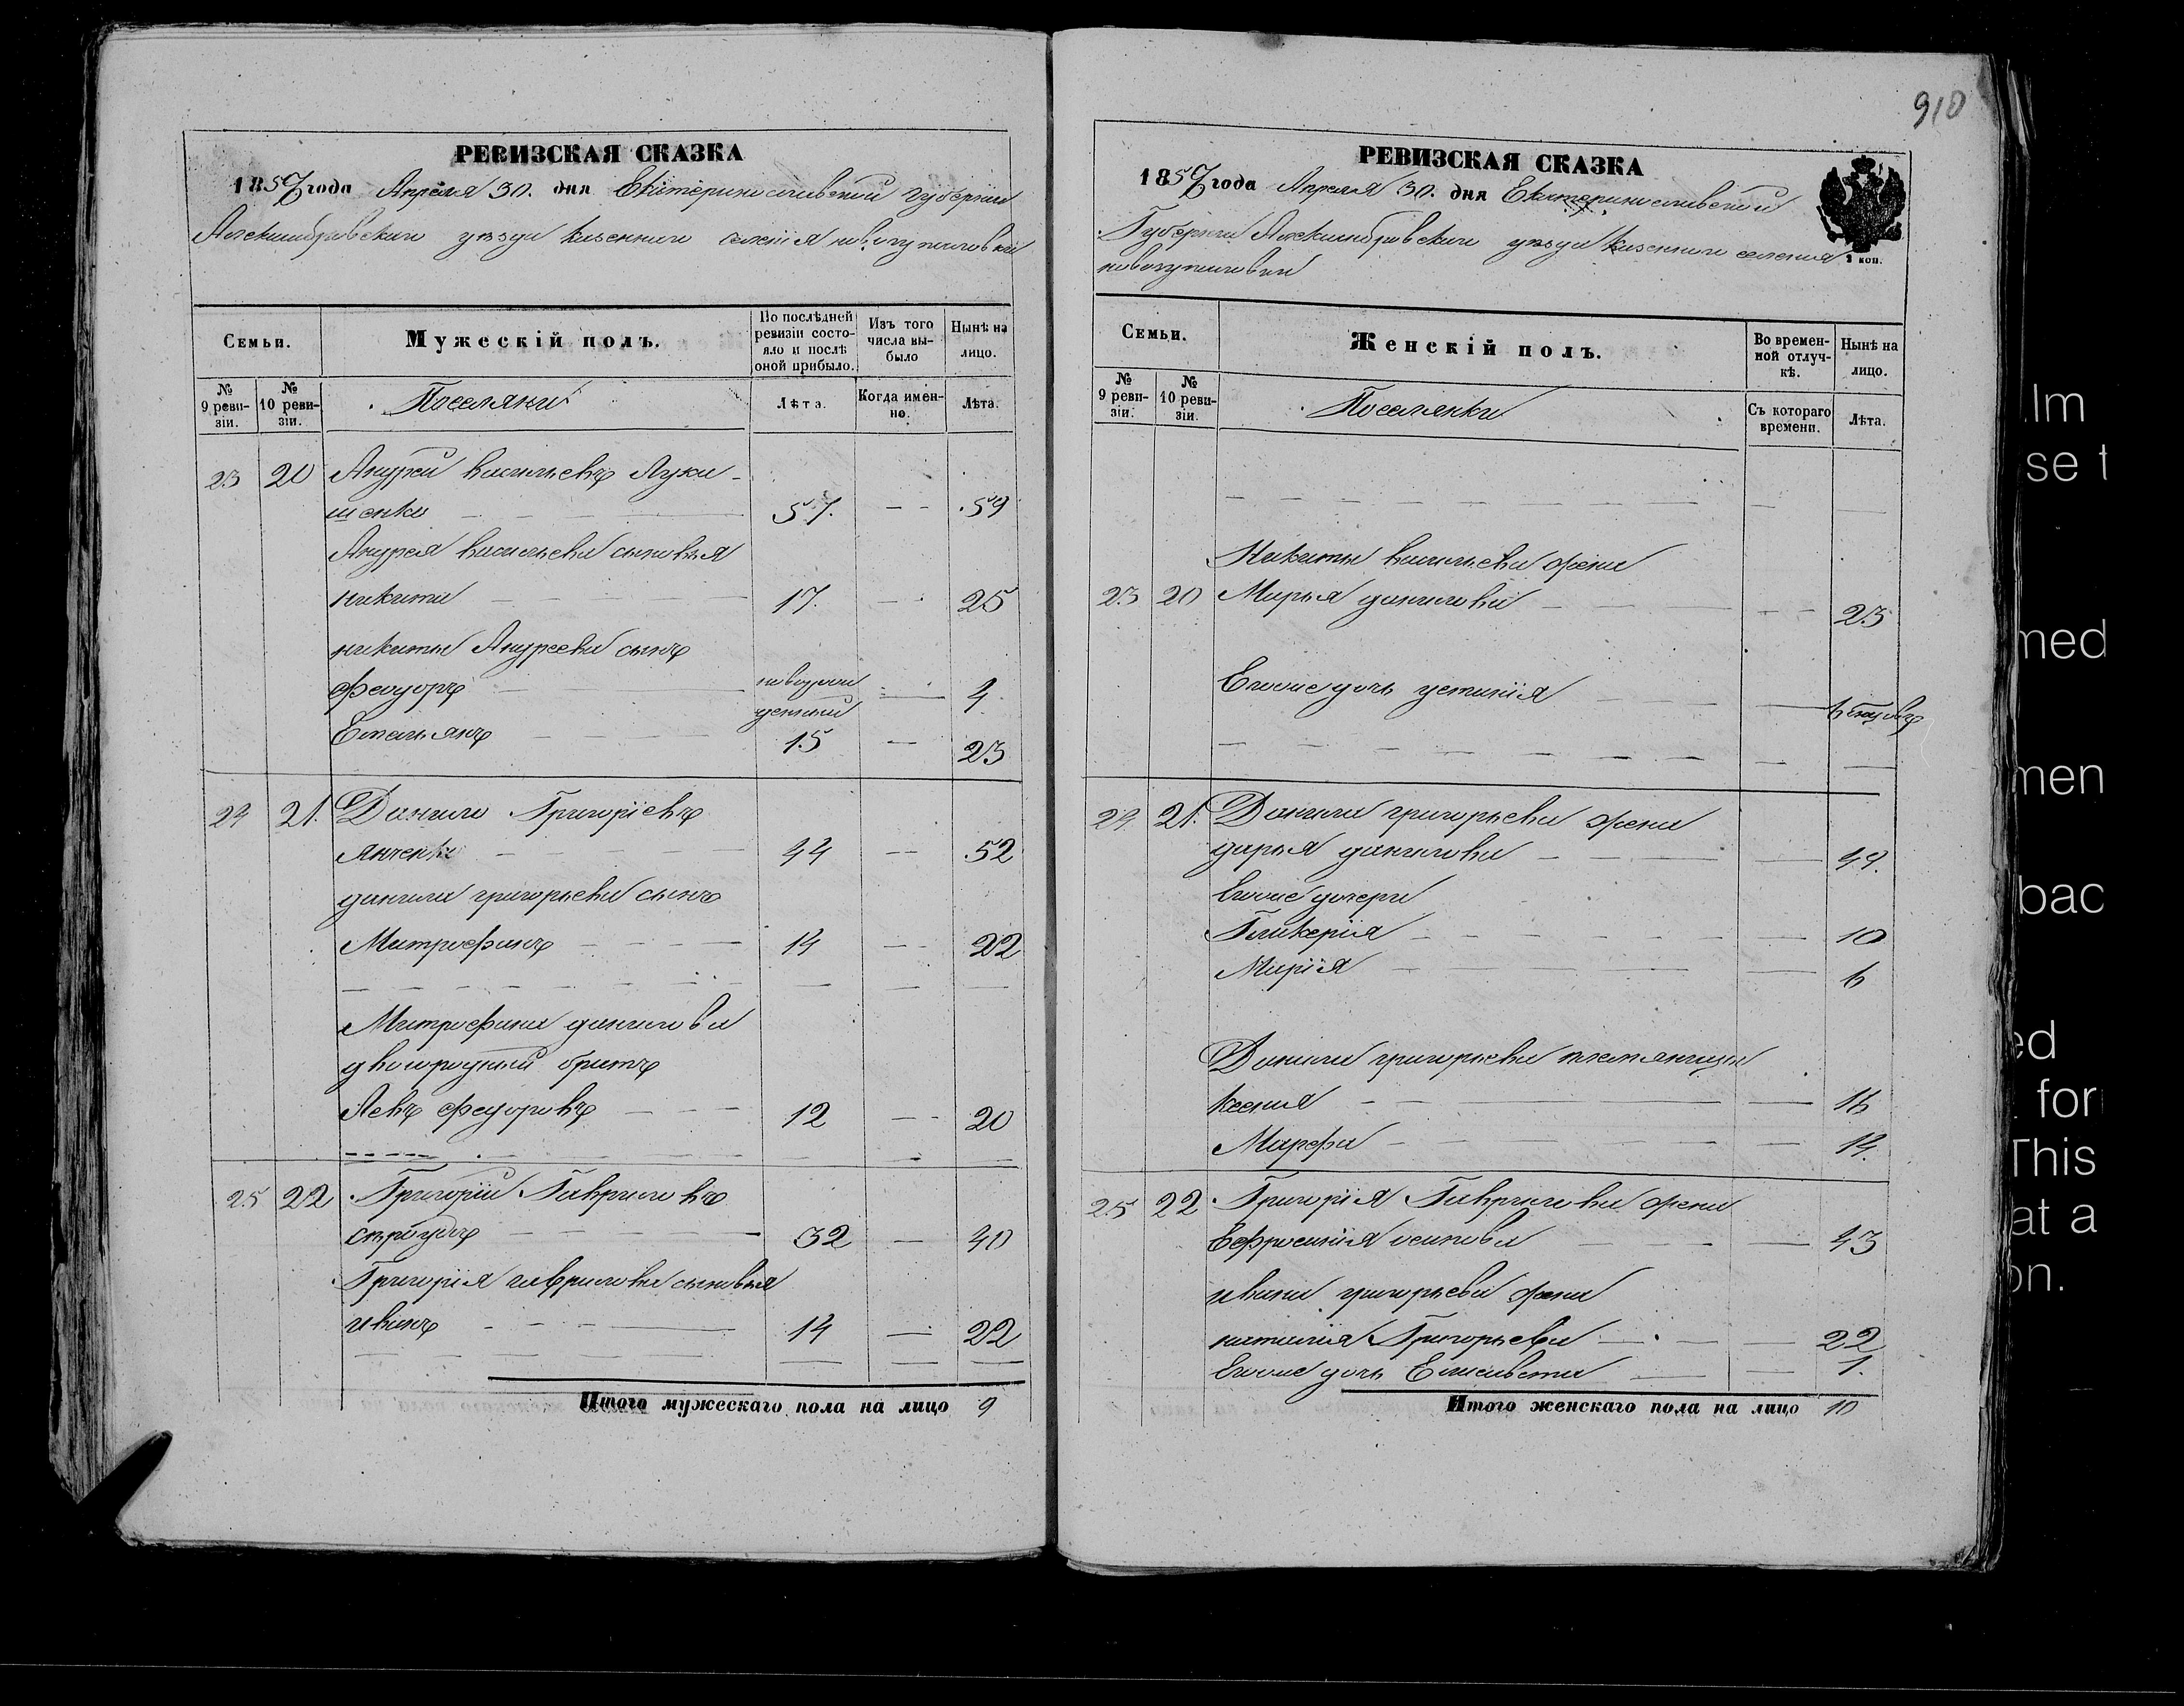 910
РЕВИЗСКАЯ СКАЗКА
1857 года Апреля 30. дня Екатеринославской губернии
Александровского уезда казенного селенія новогупаловки
Семьи.
Мужескій полъ.
По послѣдней ревизіи состояло и послѣ оной прибыло.
Изъ того числа выбыло
Нынѣ на лицо.
№ 9 ревизіи.
№ 10 ревизіи.
Поселяни
Лѣта.
Когда именно.
Лѣта.
23 20 Андрей васильевъ Луки-
шенко 57. 59
Андрея васильева сыновья
никита 17. 25
никиты Андреева сынъ
феодоръ новорожденный 4
Емельянъ 15 23
24 21. Данило Григоріевъ
Янченко 44 52
данила григорьева сынъ
Митрофанъ 14 22
Митрофана данилова
двоюродный братъ
Левъ федоровъ 12 20
25 22 Григорій Гавриловъ
32 40
Григорія гаврилова сыновья
иванъ 14 22
Итого мужескаго пола на лицо 9
РЕВИЗСКАЯ СКАЗКА
1857 года Апреля 30. дня Екатеринославской
Губернии Александровского уезда казенного селения
новогупаловки
1 коп.
Семьи.
Женскій полъ.
Во временной отлучкѣ.
Нынѣ на лицо.
№ 9 ревизіи.
№ 10 ревизіи.
Поселянки
Съ котораго времени.
Лѣта.
Никиты васильева жена
23 20 Марья данилова 23
Еговие дочь устинія
24. 21. Данила григорьева жена
дарья данилова 49.
Еговие дочери
Гликерія 10
Марія 6
Данила григорьева племянницы
ксения 16
Марфа 14.
25 22 Григорія Гаврилова жена
Ефросинія осипова 43
ивана григорьева жена
наталия Григорьева 22
Еговие дочь Елисавета 1.
Итого женскаго пола на лицо 10
lm
se t
med
men
bac
ed
for
This
at a
on.